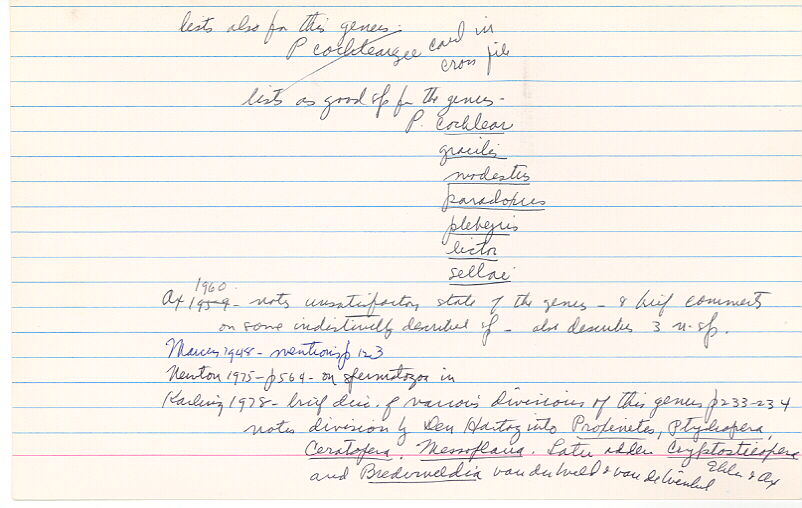 lists also for this genus.
P cochlear see card in
cross file
lists as good sp for the genus -
P. cochlear
gracilis
modestus
paradoxus
plebejus
lictor
sellai
1960
Ax 1959 - notes unsatisfactory state of the genus - & brief comments
on some indistinctly described sp - also describes 3 n. sp.
Marcus 1948 - mentions p 123
Newton 1975 - p 564 - on spermatozoa in
Karling 1978 - brief disc. of various divisions of this genus p 233-234
notes division by Den Hartog into Proxenetes, Ptychopera
Ceratopera, Messoplana. Later adden Cryptostiopera
and Brederveldia van der Velde & van de Winkel Ehlers & Ax